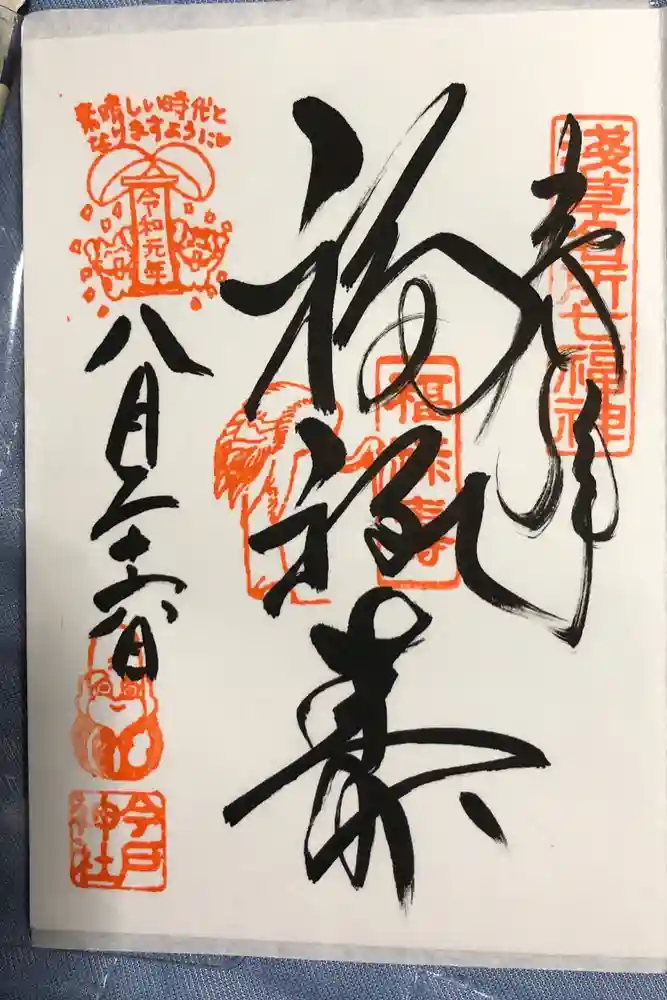 奉拝
淺草名所七福神
福禄寿
福禄寿
素晴しい時代と
なりますように♡
令和元年
八月二十六日
今戸
神社